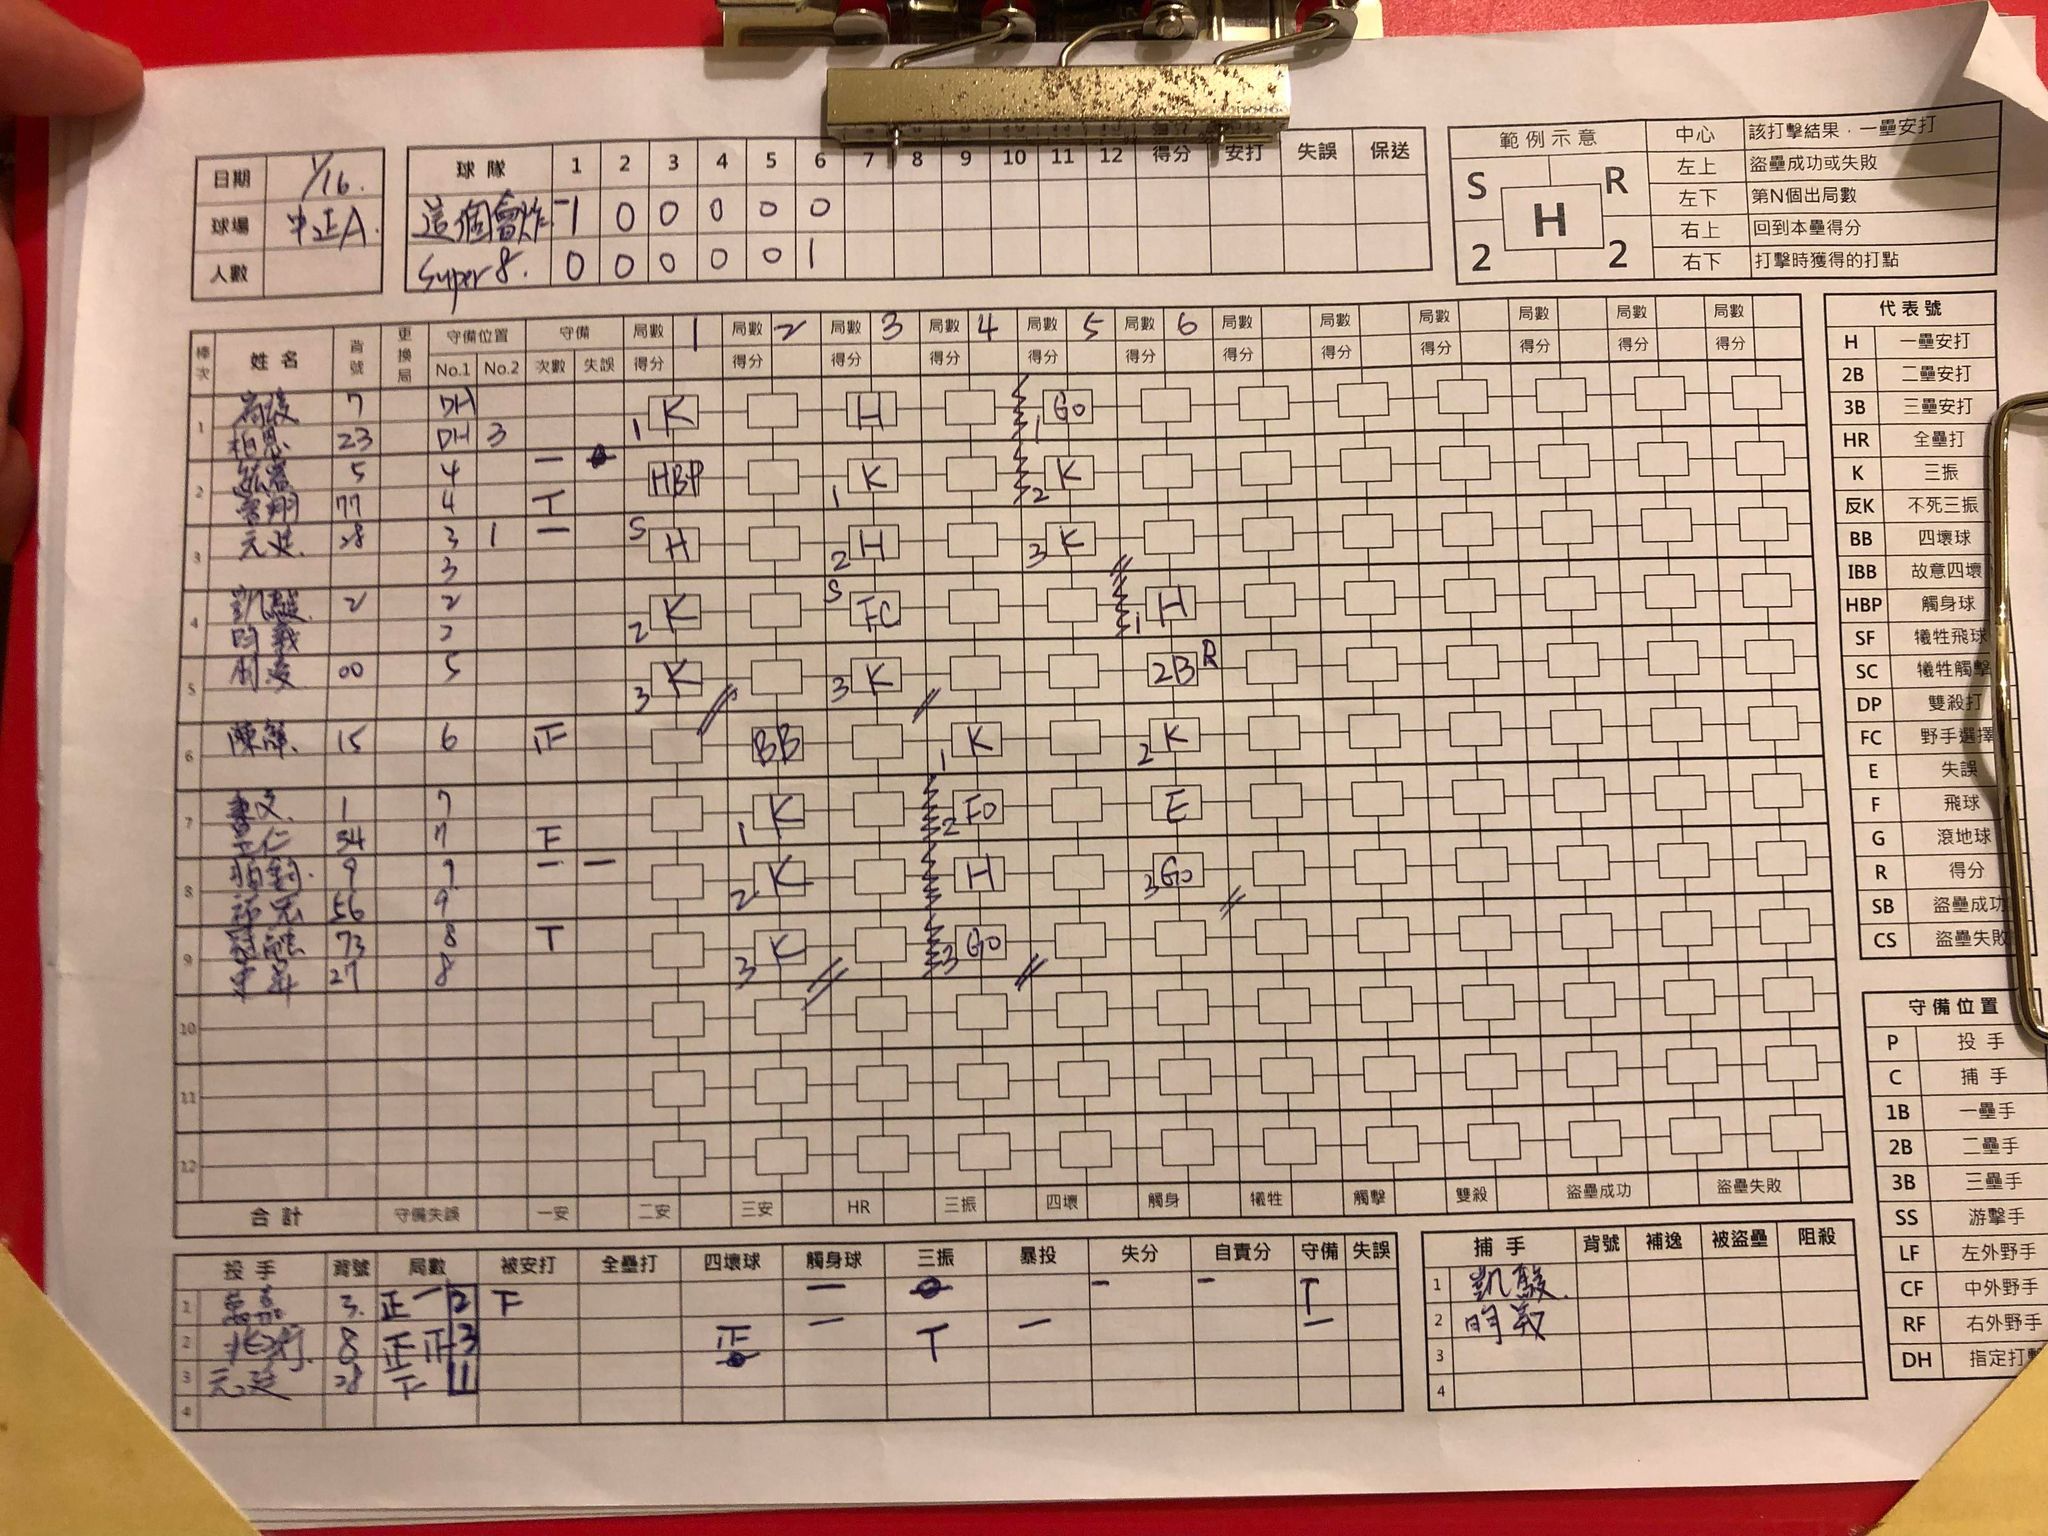 日期 1/16.
球場 中正A.
人數
球隊 1 2 3 4 5 6 7 8 9 10 11 12 得分 安打 失誤 保送
這個會炸 1 0 0 0 0 0
Super 8. 0 0 0 0 0 1
範例示意
S R H 2 2
中心 該打擊結果，一壘安打
左上 盜壘成功或失敗
左下 第N個出局數
右上 回到本壘得分
右下 打擊時獲得的打點
棒次 姓名 背號 更換局 守備位置 守備 局數 1 局數 2 局數 3 局數 4 局數 5 局數 6 局數 局數 局數 局數 局數 局數
No.1 No.2 次數 失誤 得分 得分 得分 得分 得分 得分 得分 得分 得分 得分 得分 得分
1 7 DH 1 K H 1 GO
柏恩 23 DH 3
2 5 4 一 HBP 1 K 2 K
77 4 T
3 元廷 28 3 1 一 S H 2 H 3 K
3
4 凱駿 2 2 2 K S FC 1 H
昀義 2
5 00 5 3 K 3 K 2B R
6 15 6 正 BB 1 K 2 K
7 1 7 1 K 2 FO E
34 7 下
8 9 9 一 一 2 K H 3 GO
56 9
9 73 8 T 3 K 3 GO
27 8
10
11
12
合計 守備失誤 一安 二安 三安 HR 三振 四壞 觸身 犧牲 觸擊 雙殺 盜壘成功 盜壘失敗
投手 背號 局數 被安打 全壘打 四壞球 觸身球 三振 暴投 失分 自責分 守備 失誤
1 3. 正一 2 下 一 一 一 T
2 8 正正 3 正 一 T 一 一
3 元廷 28 下 1
4
捕手 背號 補逸 被盜壘 阻殺
1 凱駿
2 昀義
3
4
代表號
H 一壘安打
2B 二壘安打
3B 三壘安打
HR 全壘打
K 三振
反K 不死三振
BB 四壞球
IBB 故意四壞
HBP 觸身球
SF 犧牲飛球
SC 犧牲觸擊
DP 雙殺打
FC 野手選擇
E 失誤
F 飛球
G 滾地球
R 得分
SB 盜壘成功
CS 盜壘失敗
守備位置
P 投手
C 捕手
1B 一壘手
2B 二壘手
3B 三壘手
SS 游擊手
LF 左外野手
CF 中外野手
RF 右外野手
DH 指定打擊